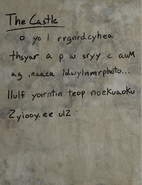 The Castle
o yo l rrgnrd.cyhea
thsyar a p w sryy c auM
ag .eaaca ldwylnmrphoto...
llulf yorntin teop noekuaoku
Zyiooy.ee ulz